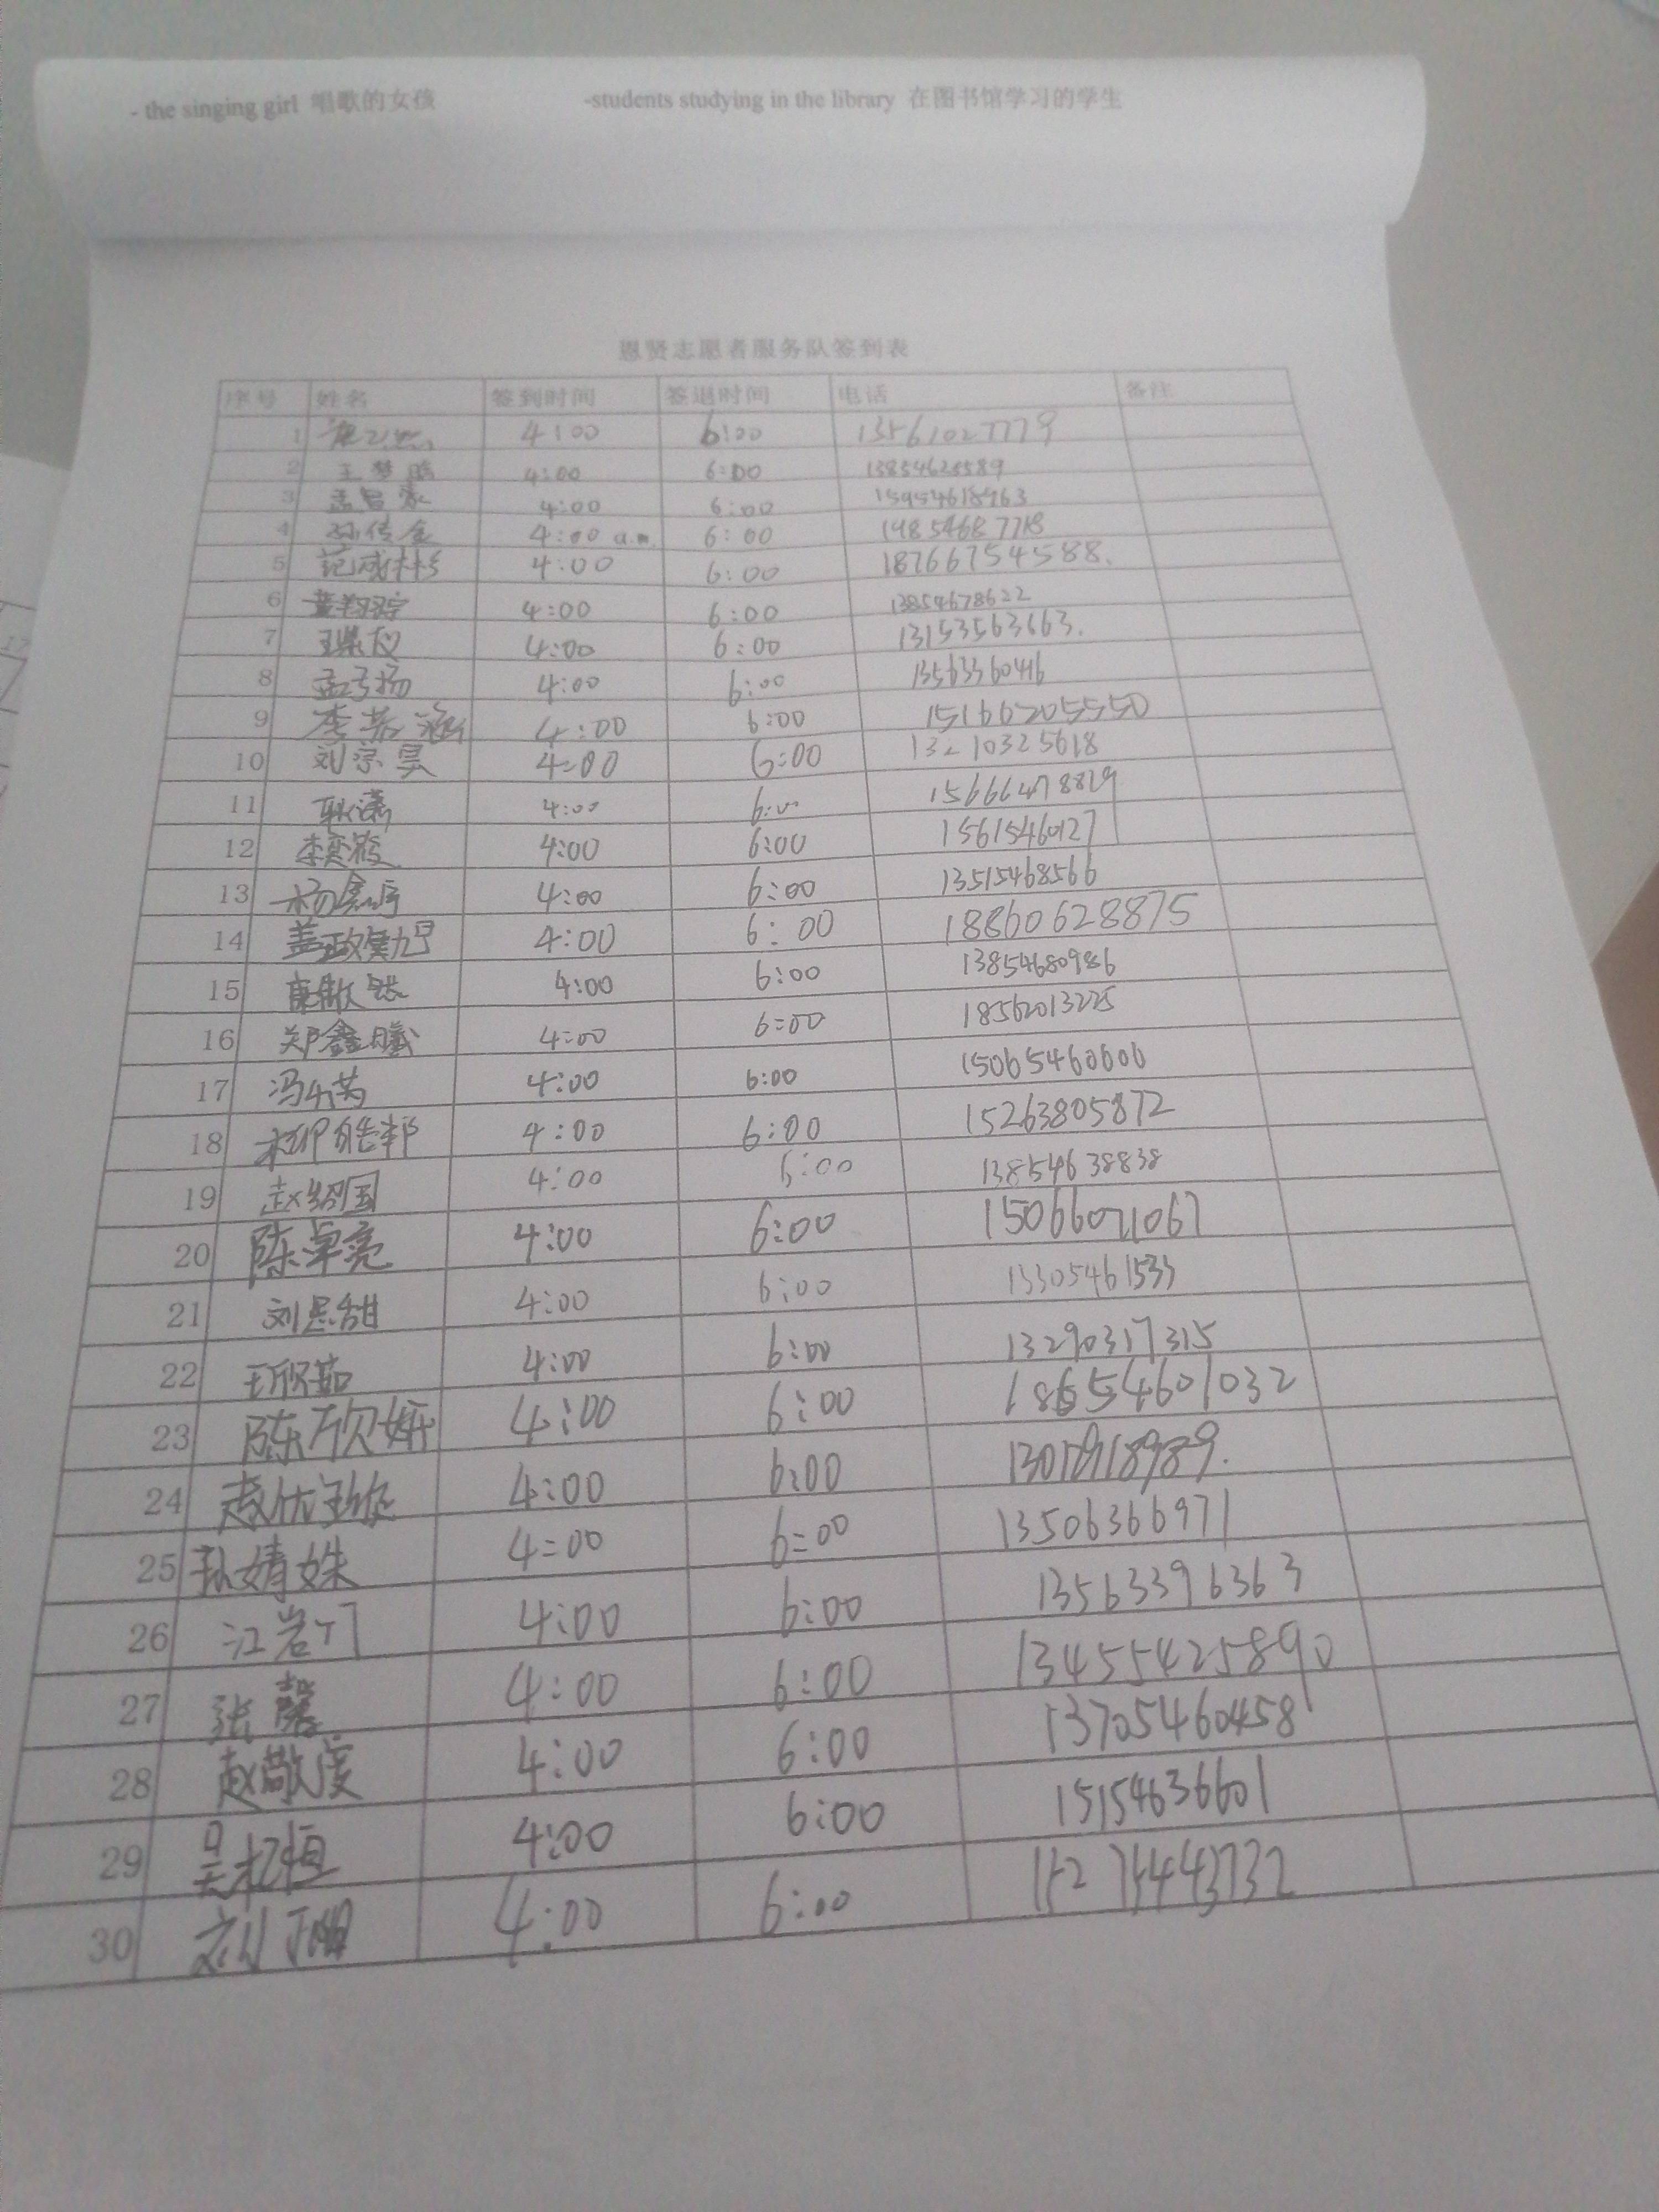 - the singing girl 唱歌的女孩 -students studying in the library 在图书馆学习的学生
恩贤志愿者服务队签到表
序号 姓名 签到时间 签退时间 电话 备注
1 4:00 6:00 13561027779
2 王梦 4:00 6:00
3 孟 家 4:00 6:00 15954618963
4 孙传金 4:00 a.m. 6:00
5 范成林杉 4:00 6:00 18766754588.
6 4:00 6:00 13854678622
7 4:00 6:00 13153563663.
8 孟子扬 4:00 6:00 13563360416
9 李 涵 4:00 6:00 15166205550
10 刘宗昊 4:00 6:00 13210325618
11 耿潇 4:00 6:00
12 李奕 4:00 6:00 15615460127
13 杨 4:00 6:00 13515468566
14 盖政 4:00 6:00 18860628875
15 4:00 6:00 13854680986
16 郑鑫曦 4:00 6:00 18562013225
17 冯 4:00 6:00 15065460606
18 柳皓邦 4:00 6:00 15263805872
19 赵绍国 4:00 6:00 13854638838
20 陈卓亮 4:00 6:00 15066071067
21 刘思甜 4:00 6:00 13305461533
22 王欣茹 4:00 6:00 13290317315
23 陈欣 4:00 6:00 18654601032
24 4:00 6:00
25 孙婧姝 4:00 6:00 13506366971
26 江岩 4:00 6:00 13563396363
27 张馨 4:00 6:00 13455425890
28 赵敬度 4:00 6:00 13705460458
29 吴 恒 4:00 6:00 15154636601
30 刘 4:00 6:00